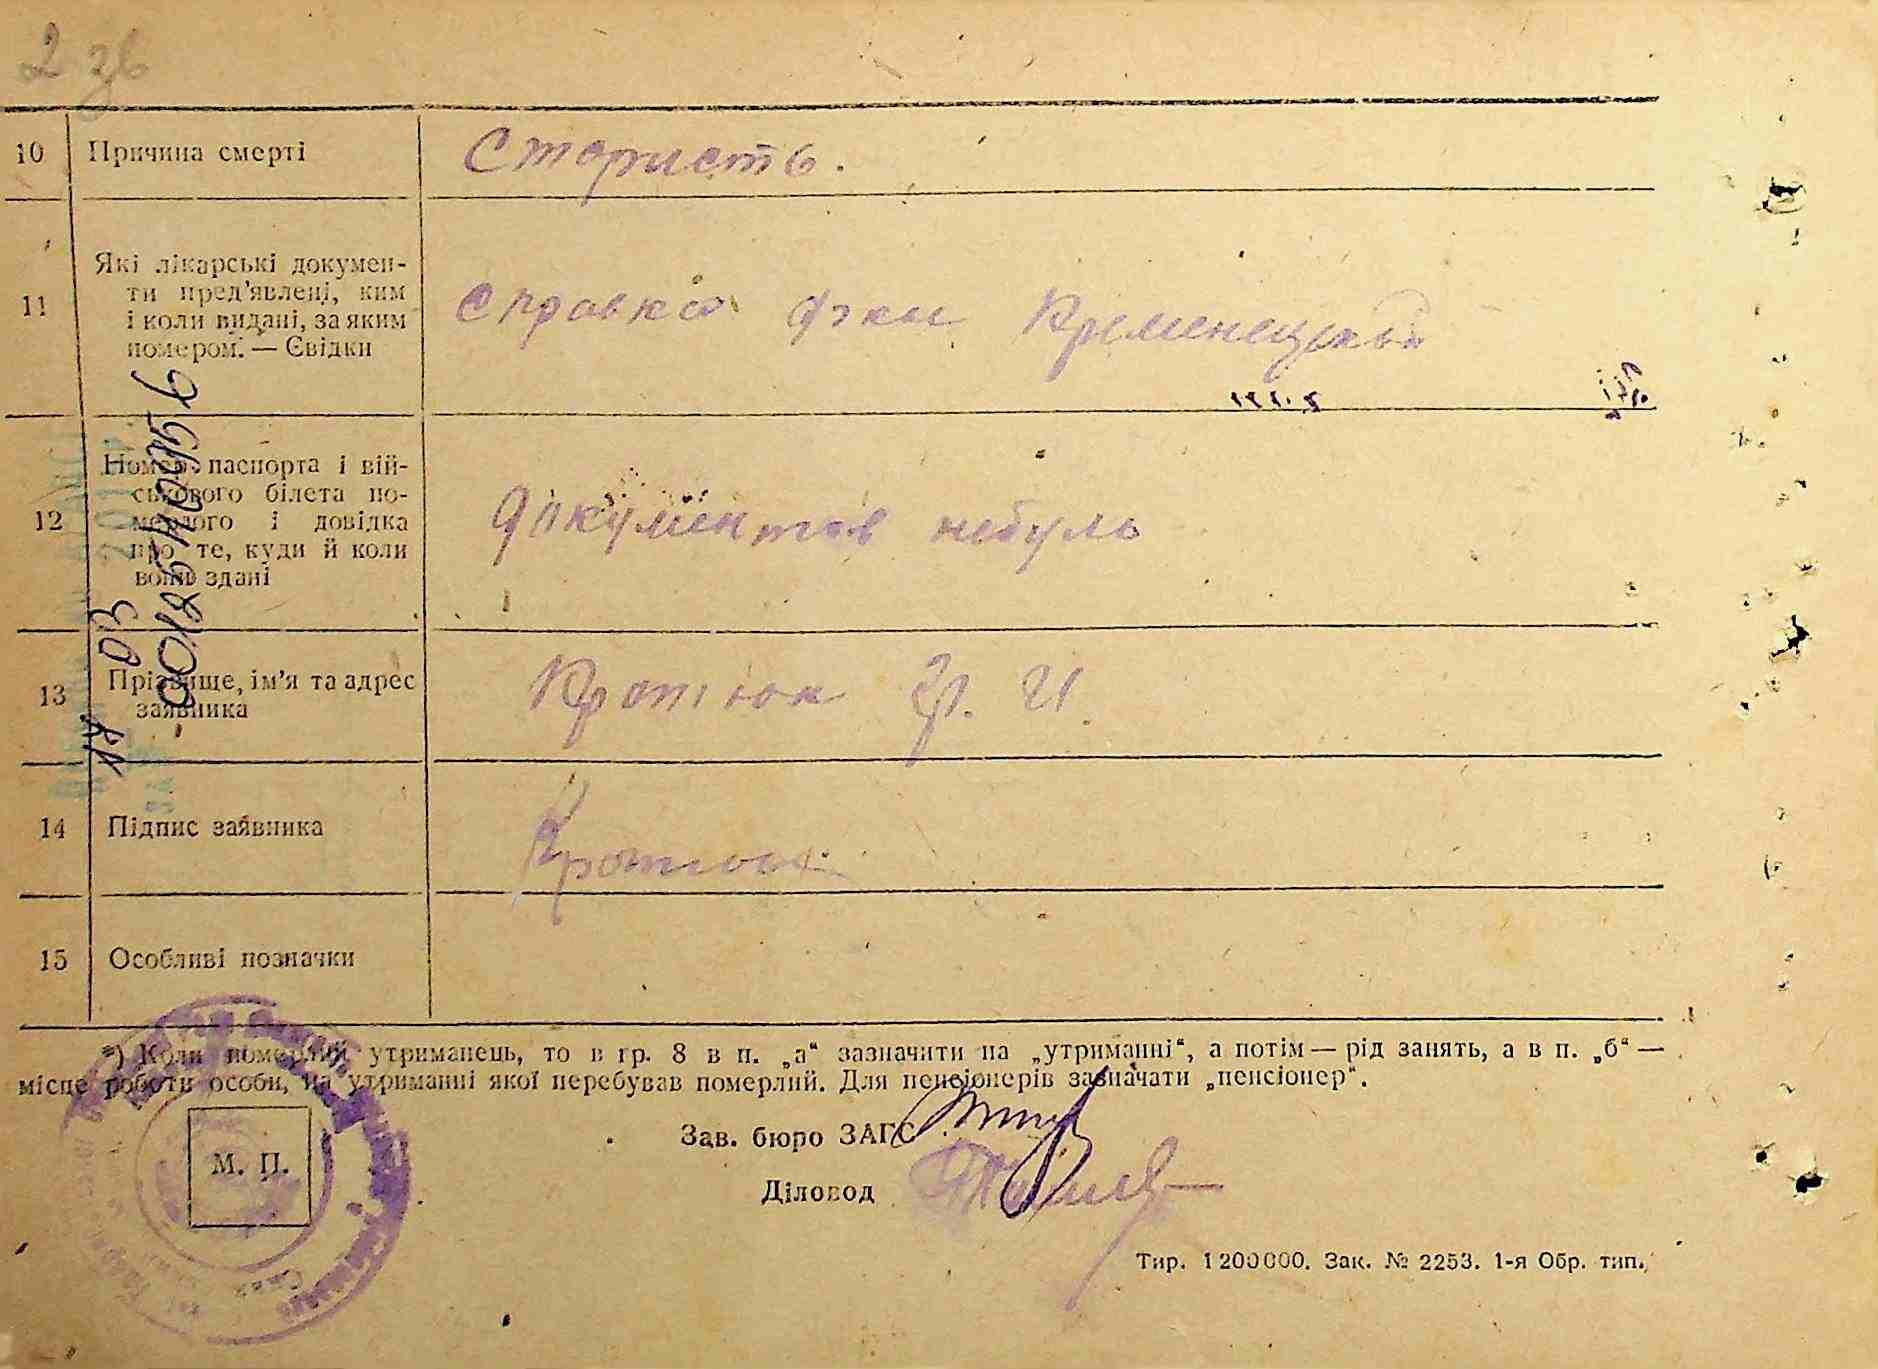 2 зв
10 Причина смерті Старисть.
11 Які лікарські докумен-
ти пред'явлені, ким
і коли видані, за яким
номером. — Свідки
Справка Кременецький
12 Номер паспорта і вій-
ськового білета по-
мерлого і довідка
про те, куди й коли
вони здані
документов небуль
13 Прізвище, ім'я та адрес
заявника
Кротюк Гр. И.
14 Підпис заявника Кротюк
15 Особливі позначки
001251400956
17 03
*) Коли померлий утриманець, то в гр. 8 в п. „а“ зазначити на „утриманні“, а потім — рід занять, а в п. „б“ —
місце роботи особи, на утриманні якої перебував померлий. Для пенсіонерів зазначати „пенсіонер“.
М. П.
Зав. бюро ЗАГС
Діловод
Тир. 1200000. Зак. № 2253. 1-я Обр. тип.